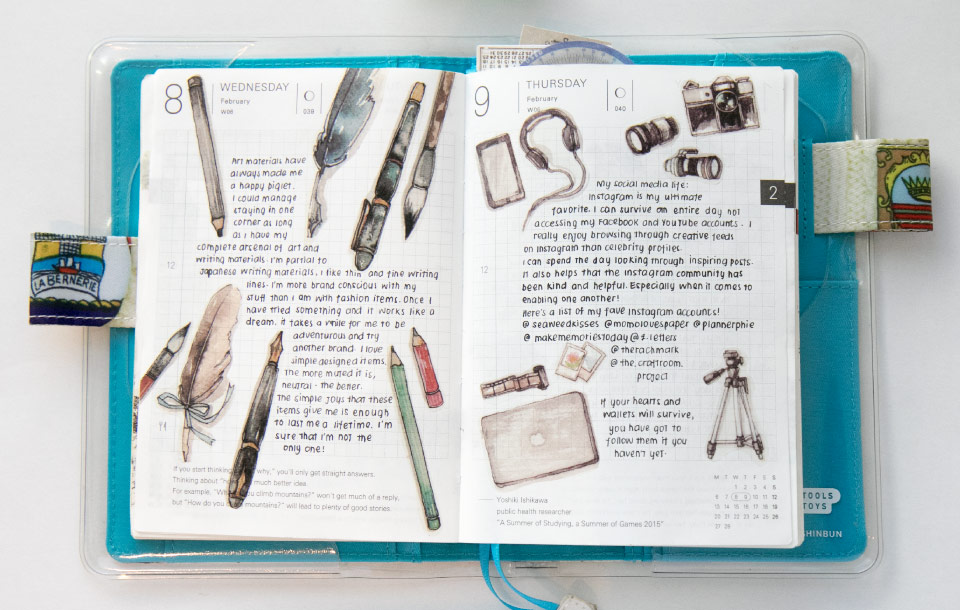 8
WEDNESDAY
February
W06
039
Art materials have
always made me
a happy piglet.
I could manage
staying in one
corner as long
as I have my
complete arsenal of art and
writing materials. I'm partial to
Japanese writing materials. I like thin and fine writing
lines. I'm more brand conscious with my
stuff than I am with fashion items. Once I
have tried something and it works like a
dream. It takes a while for me to be
adventurous and try
another brand. I love
simple designed items.
The more muted it is,
neutral - the better.
The simple joys that these
items give me is enough
to last me a lifetime. I'm
sure that I'm not the
only one!
12
If you start thinking why," you'll only get straight answers.
Thinking about "How much better idea.
For example, "Why you climb mountains?" won't get much of a reply,
but "How do you mountains?" will lead to plenty of good stories.
LA BERNERIE
9
THURSDAY
February
W06
040
2
My social media life:
Instagram is my ultimate
favorite. I can survive an entire day not
accessing my Facebook and YouTube accounts. I
really enjoy browsing through creative feeds
on Instagram than celebrity profiles.
I can spend the day looking through inspiring posts.
It also helps that the Instagram community has
been kind and helpful. Especially when it comes to
enabling one another!
Here's a list of my fave Instagram accounts!
@seaweedkisses @momolovespaper @plannerphie
@makememoriestoday @s.letters
@therachmark
@the.craftroom.
project
12
If your hearts and
wallets will survive,
you have got to
follow them if you
haven't yet.
Yoshiki Ishikawa
public health researcher
"A Summer of Studying, a Summer of Games 2015"
M T W T F S S
1 2 3 4 5
6 7 8 9 10 11 12
13 14 15 16 17 18 19
20 21 22 23 24 25 26
27 28
TOOLS
TOYS
SHINBUN